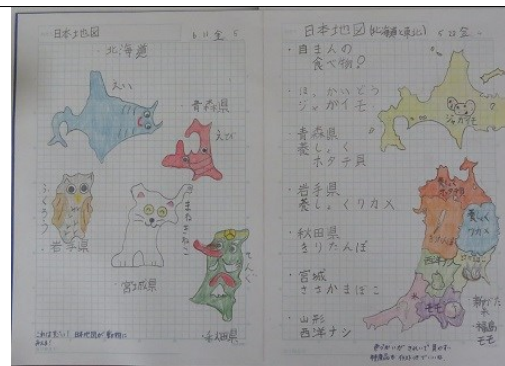 日本地図
金
北海道
えい
青森県
えび
ふくろう
岩手県
まねきねこ
宮城県
てんぐ
秋田県
日本地図(北海道と東北)
金
・自まんの
食べ物?
・ほっかいどう
ジャガイモ
青森県
養しょく
ホタテ貝
・岩手県
養しょくワカメ
・秋田県
きりたんぽ
・宮城
ささかまぼこ
・山形
西洋ナシ
ジャガイモ
養しょく
ワカメ
きりたんぽ
西洋ナシ
モモ
・福島
モモ